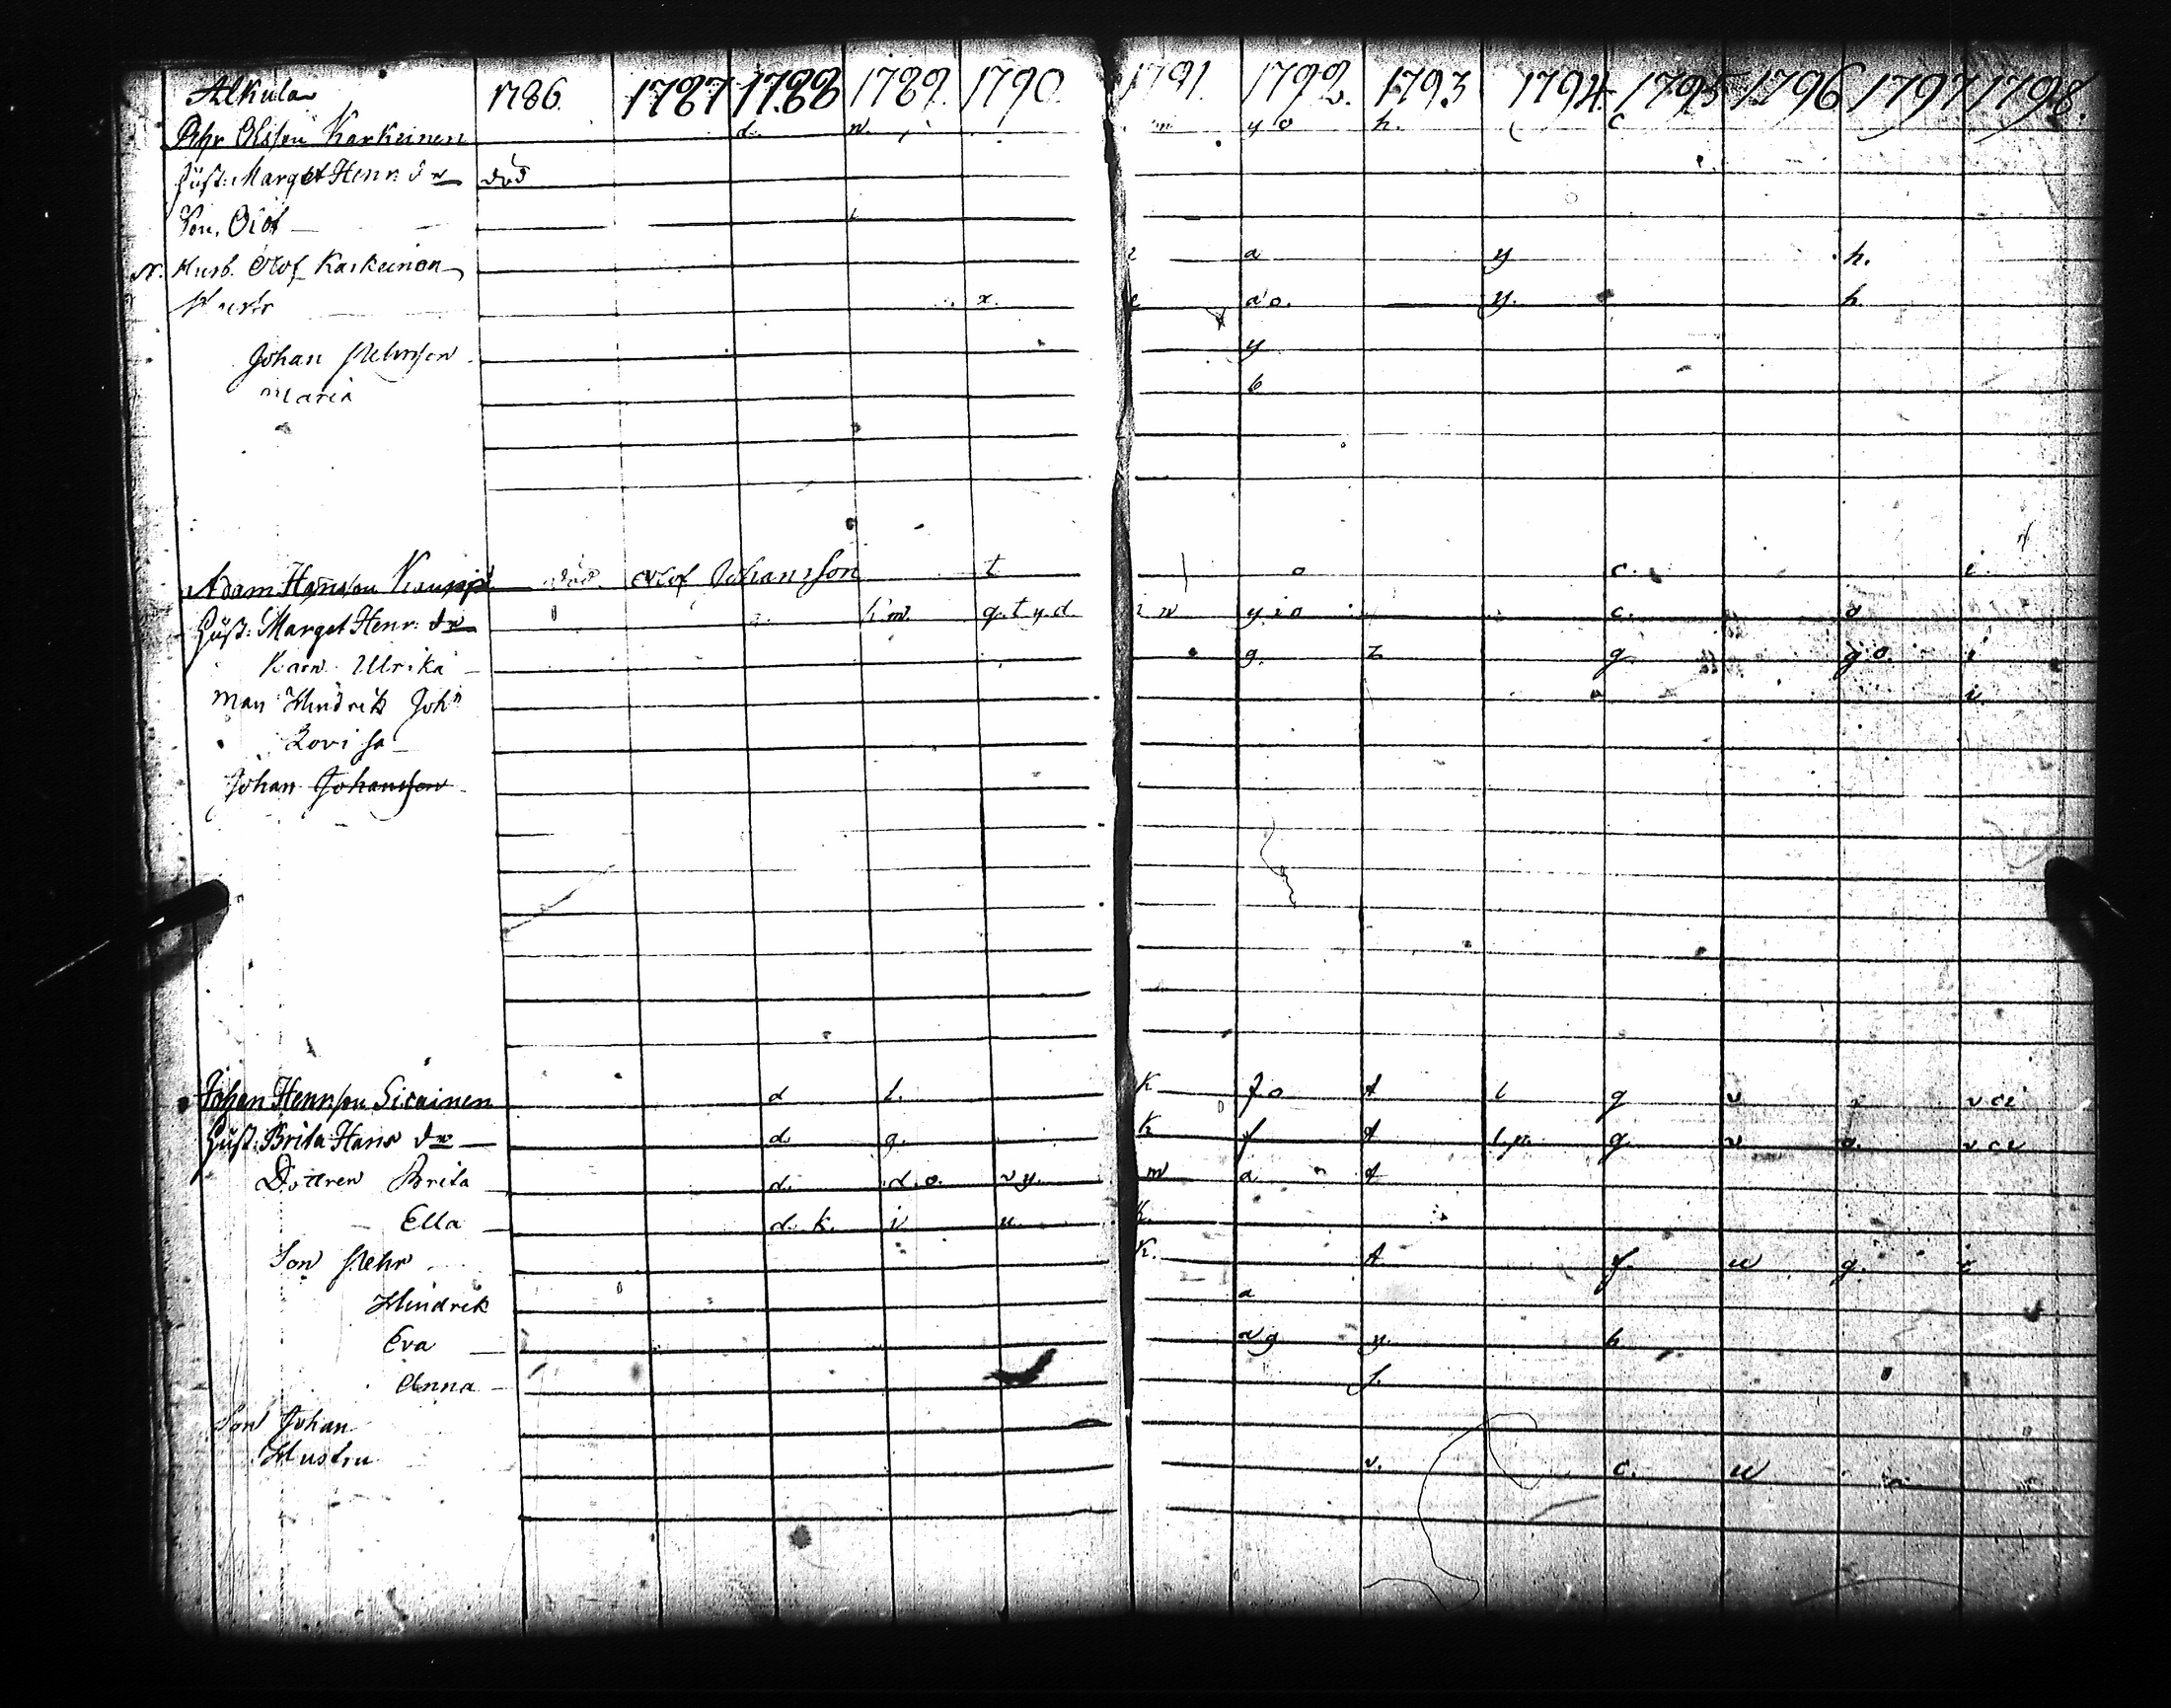 Alkula 1786. 1787 1788 1789. 1790. 1791. 1792. 1793 1794. 1795 1796 1797 1798.
Pehr Olsson Karkeinen d. n. y o h. c
Hust: Marget Henr: dr död
Son. Olof
N. Husb. Olof Karkeinen a y h.
x. a o. y. h.
Johan Pehrsson y
Maria b
Adam Hansson död Olof Johansson t o c. i.
Hust: Marget Henr: dr h m. q. t y d i n y x o c. o
Karin Ulrika g. z g. g o. i
Man Hindrik Joh:n i.
Lovisa
Johan Johansson
Johan Henrsson Sicainen d l. K f o t l g v v c i
Hust: Brita Hans dr d. g. K f t l. p. g. v a. v c e
Döttren Brita d. d. o. v y. m a t
Ella d. k. i u. K.
Son Pehr K. t f. w g. i
Hindrik a
Eva a g y. h
Anna f.
Son Johan
Hustru v. c. w